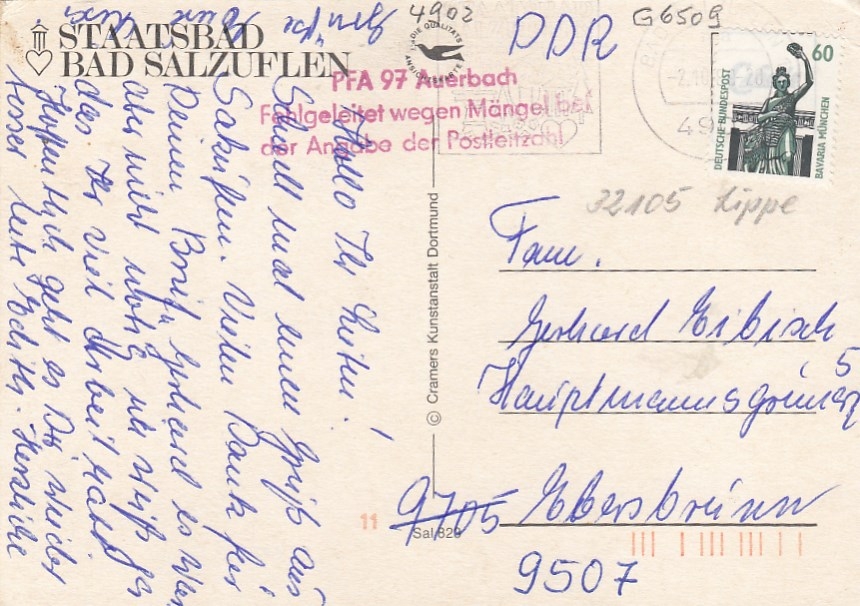 4902
G6509
STAATSBAD
BAD SALZUFLEN
DIE QUALITÄTS
ANSICHTSKARTE
DDR
60
DEUTSCHE BUNDESPOST
BAVARIA MÜNCHEN
PFA 97 Auerbach
Fehlgeleitet wegen Mängel bei
der Angabe der Postleitzahl
Hallo Ihr Lieben!
Schnell mal einen Gruß aus
Salzuflen. Vielen Dank für
Deinen Brief, Gerhard es war
aber nicht nötig, weiß ja
das Ihr viel Arbeit habt.
Hoffentlich geht es Dir wieder
besser liebe Herzliche
Grüße
Eure
© Cramers Kunstanstalt Dortmund
32105 Lippe
Fam.
Gerhard Eibisch
Hauptmannsgrüner 5
9705 Ebersbrunn
9507
11
Sal 829